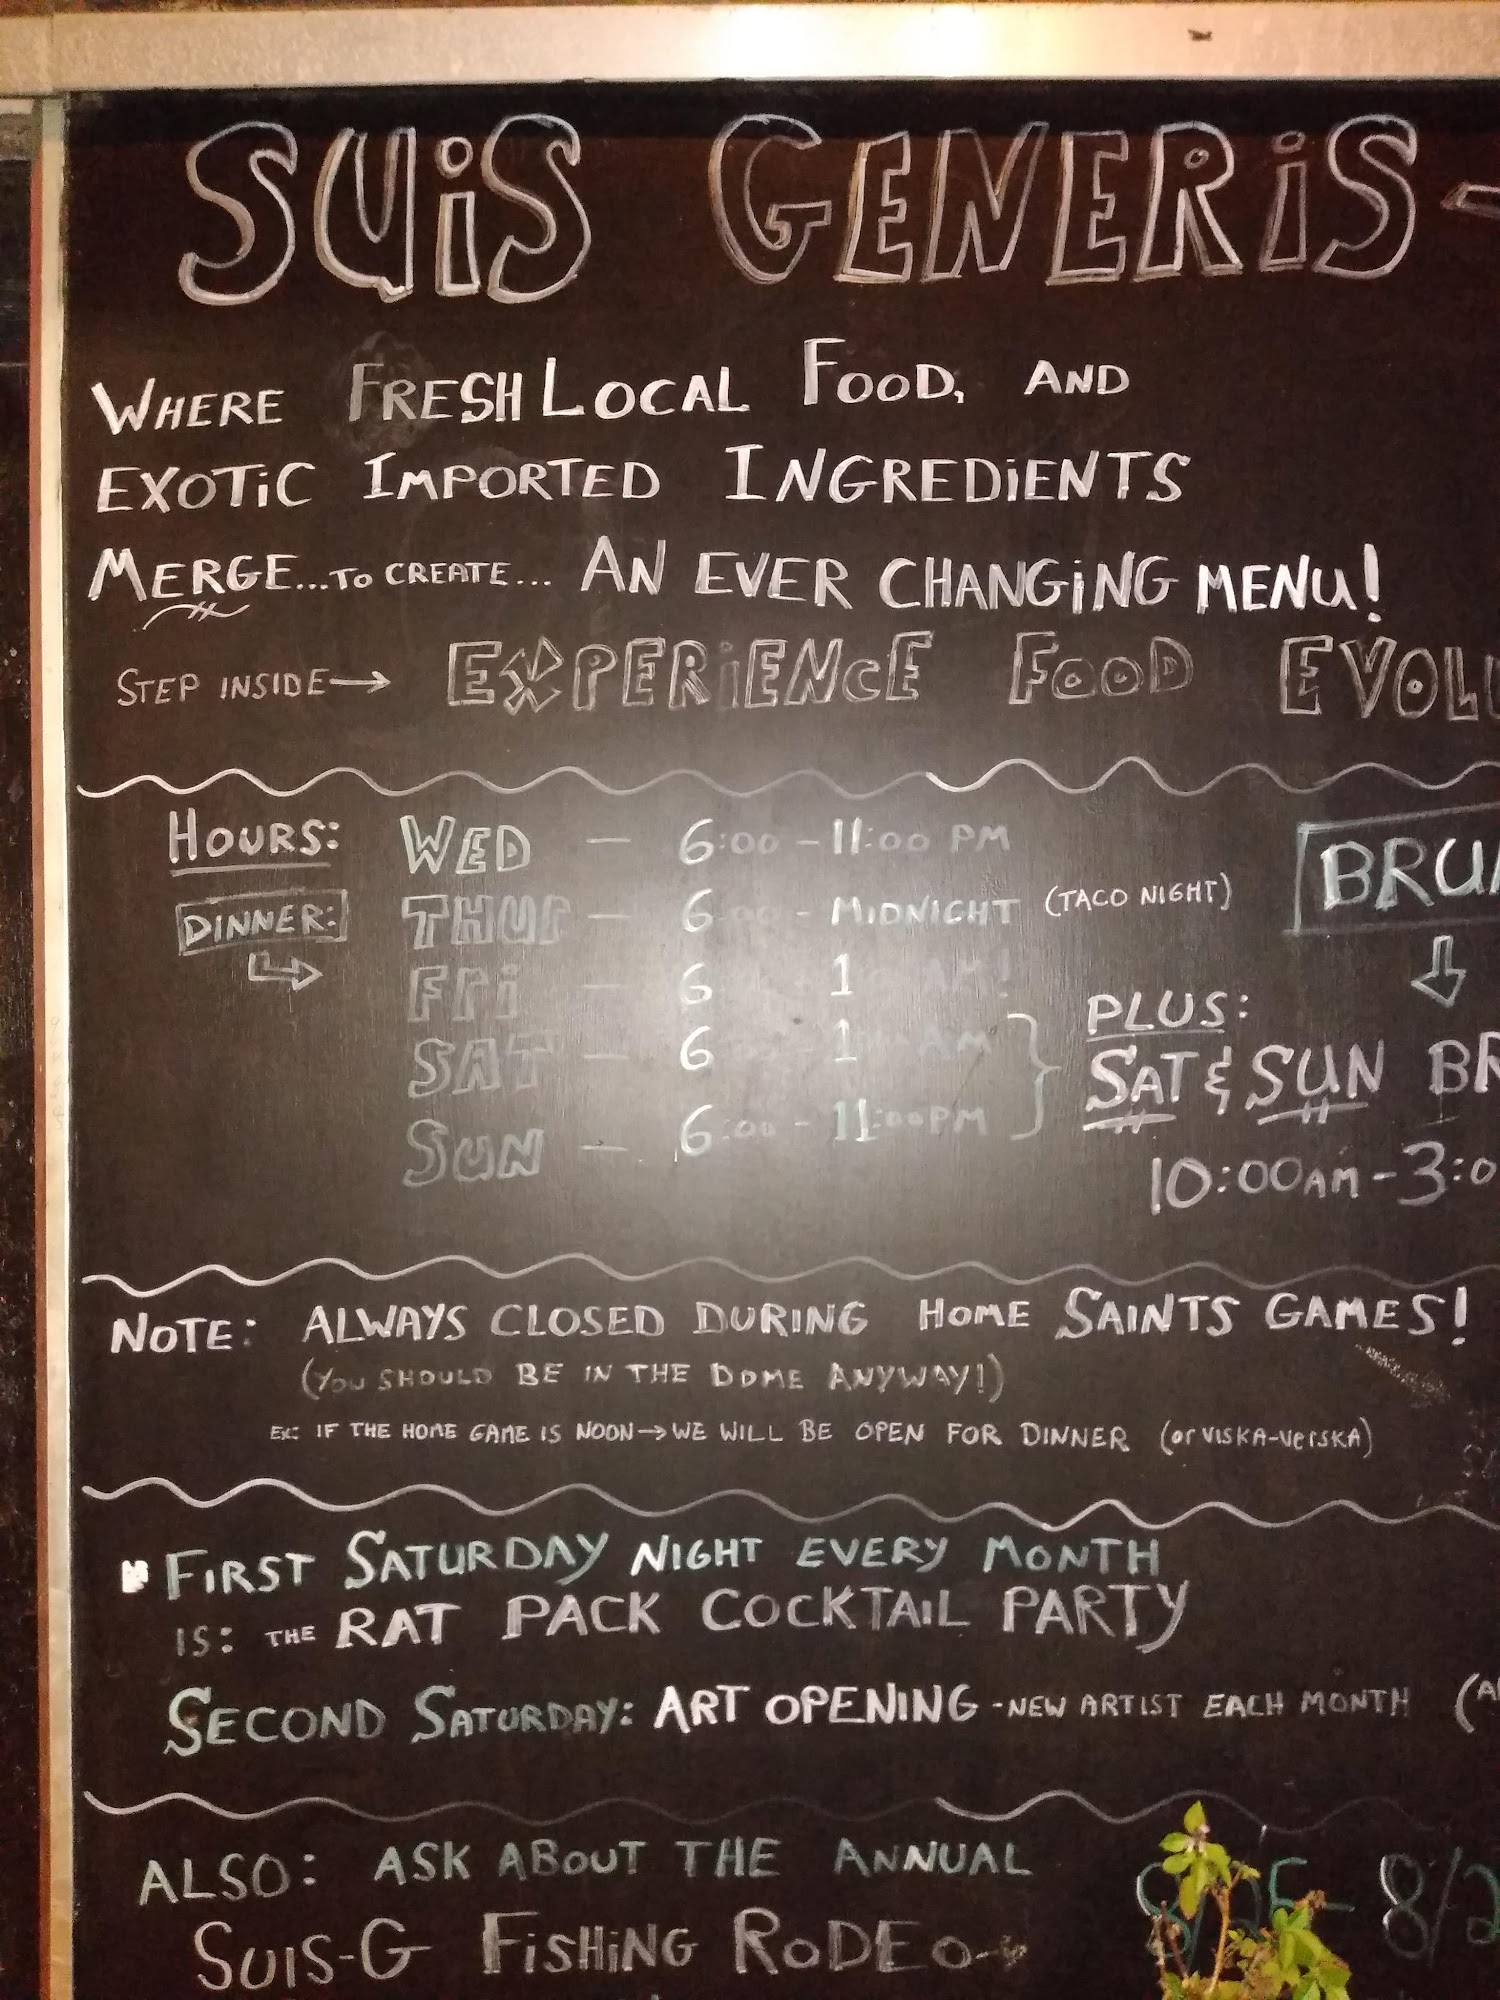 SUiS GENERiS -
WHERE FRESH LOCAL FOOD, AND
EXOTiC IMPORTED INGREDiENTS
MERGE...TO CREATE... AN EVER CHANGiNG MENU!
STEP INSIDE→ EXPERiENCE FOOD EVOLU
HOURS: WED - 6:00 - 11:00 PM
DINNER: THUR - 6:00 - MIDNIGHT (TACO NIGHT)
FRi - 6 1 AM!
SAT - 6 - 1 AM
SUN - 6:00 - 11:00PM
BRUN
PLUS:
SAT & SUN BR
10:00AM - 3:0
NOTE: ALWAYS CLOSED DURING HOME SAINTS GAMES!
(YOU SHOULD BE IN THE DOME ANYWAY!)
EX: IF THE HOME GAME IS NOON→WE WILL BE OPEN FOR DINNER (or VISKA-VERSKA)
FIRST SATURDAY NIGHT EVERY MONTH
IS: THE RAT PACK COCKTAIL PARTY
SECOND SATURDAY: ART OPENING - NEW ARTIST EACH MONTH
ALSO: ASK ABOUT THE ANNUAL
SUIS-G FiSHiNG RODEO
8/25 - 8/2